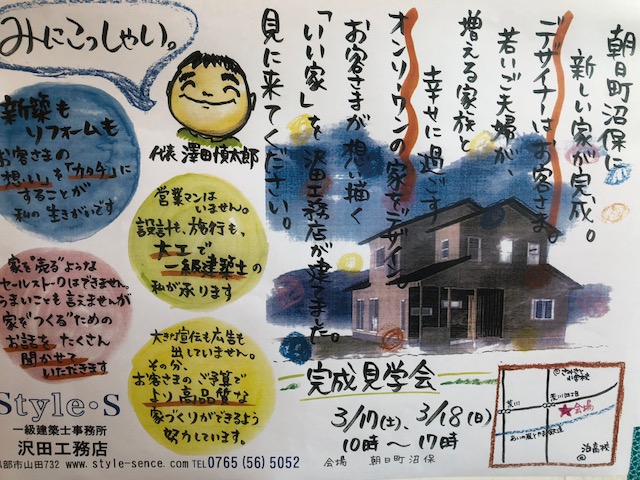 みにこっしゃい。
代表 澤田慎太郎
朝日町沼保に
新しい家が完成。
デザイナーはお客さま。
若いご夫婦が、
増える家族と
幸せに過ごす
オンリーワンの家をデザイン。
お客さまが想い描く
「いい家」を沢田工務店が建てました。
見に来てください。
新築も
リフォームも
お客さまの
想いいを「カタチ」に
することが
私の生きがいです
営業マンは
いません。
設計も、施行も、
大工で
一級建築士の
私が承ります
家を"売る"ような
セールストークはできません。
うまいことも言えませんが
家を"つくる"ための
お話をたくさん
聞かせて
いただきます
大きな宣伝も広告も
出していません。
その分、
お客さまのご予算で
より高品質な
家づくりができるよう
努力しています。
完成見学会
3/17(土)、3/18(日)
10時〜17時
会場 朝日町沼保
さみさと小学校
荒川
荒川四丁目
会場
あいの風とやま鉄道
泊高校
Style・S
一級建築士事務所
沢田工務店
部市山田732 www.style-sence.com TEL0765(56)5052